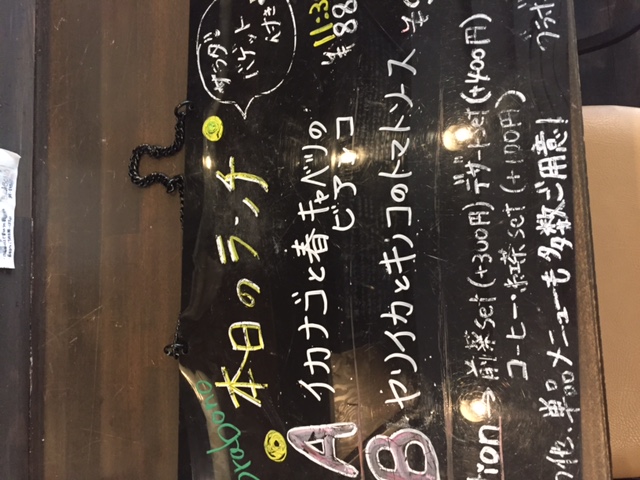 サラダ
バゲット
付き
11:3
¥88
本日のランチ
A イカナゴと春キャベツの
ビアンコ
B ヤリイカとキノコのトマトソース
tion → 前菜set(+300円) デザートset(+400円)
コーヒー・紅茶set(+100円)
の他、単品メニューも多数ご用意!